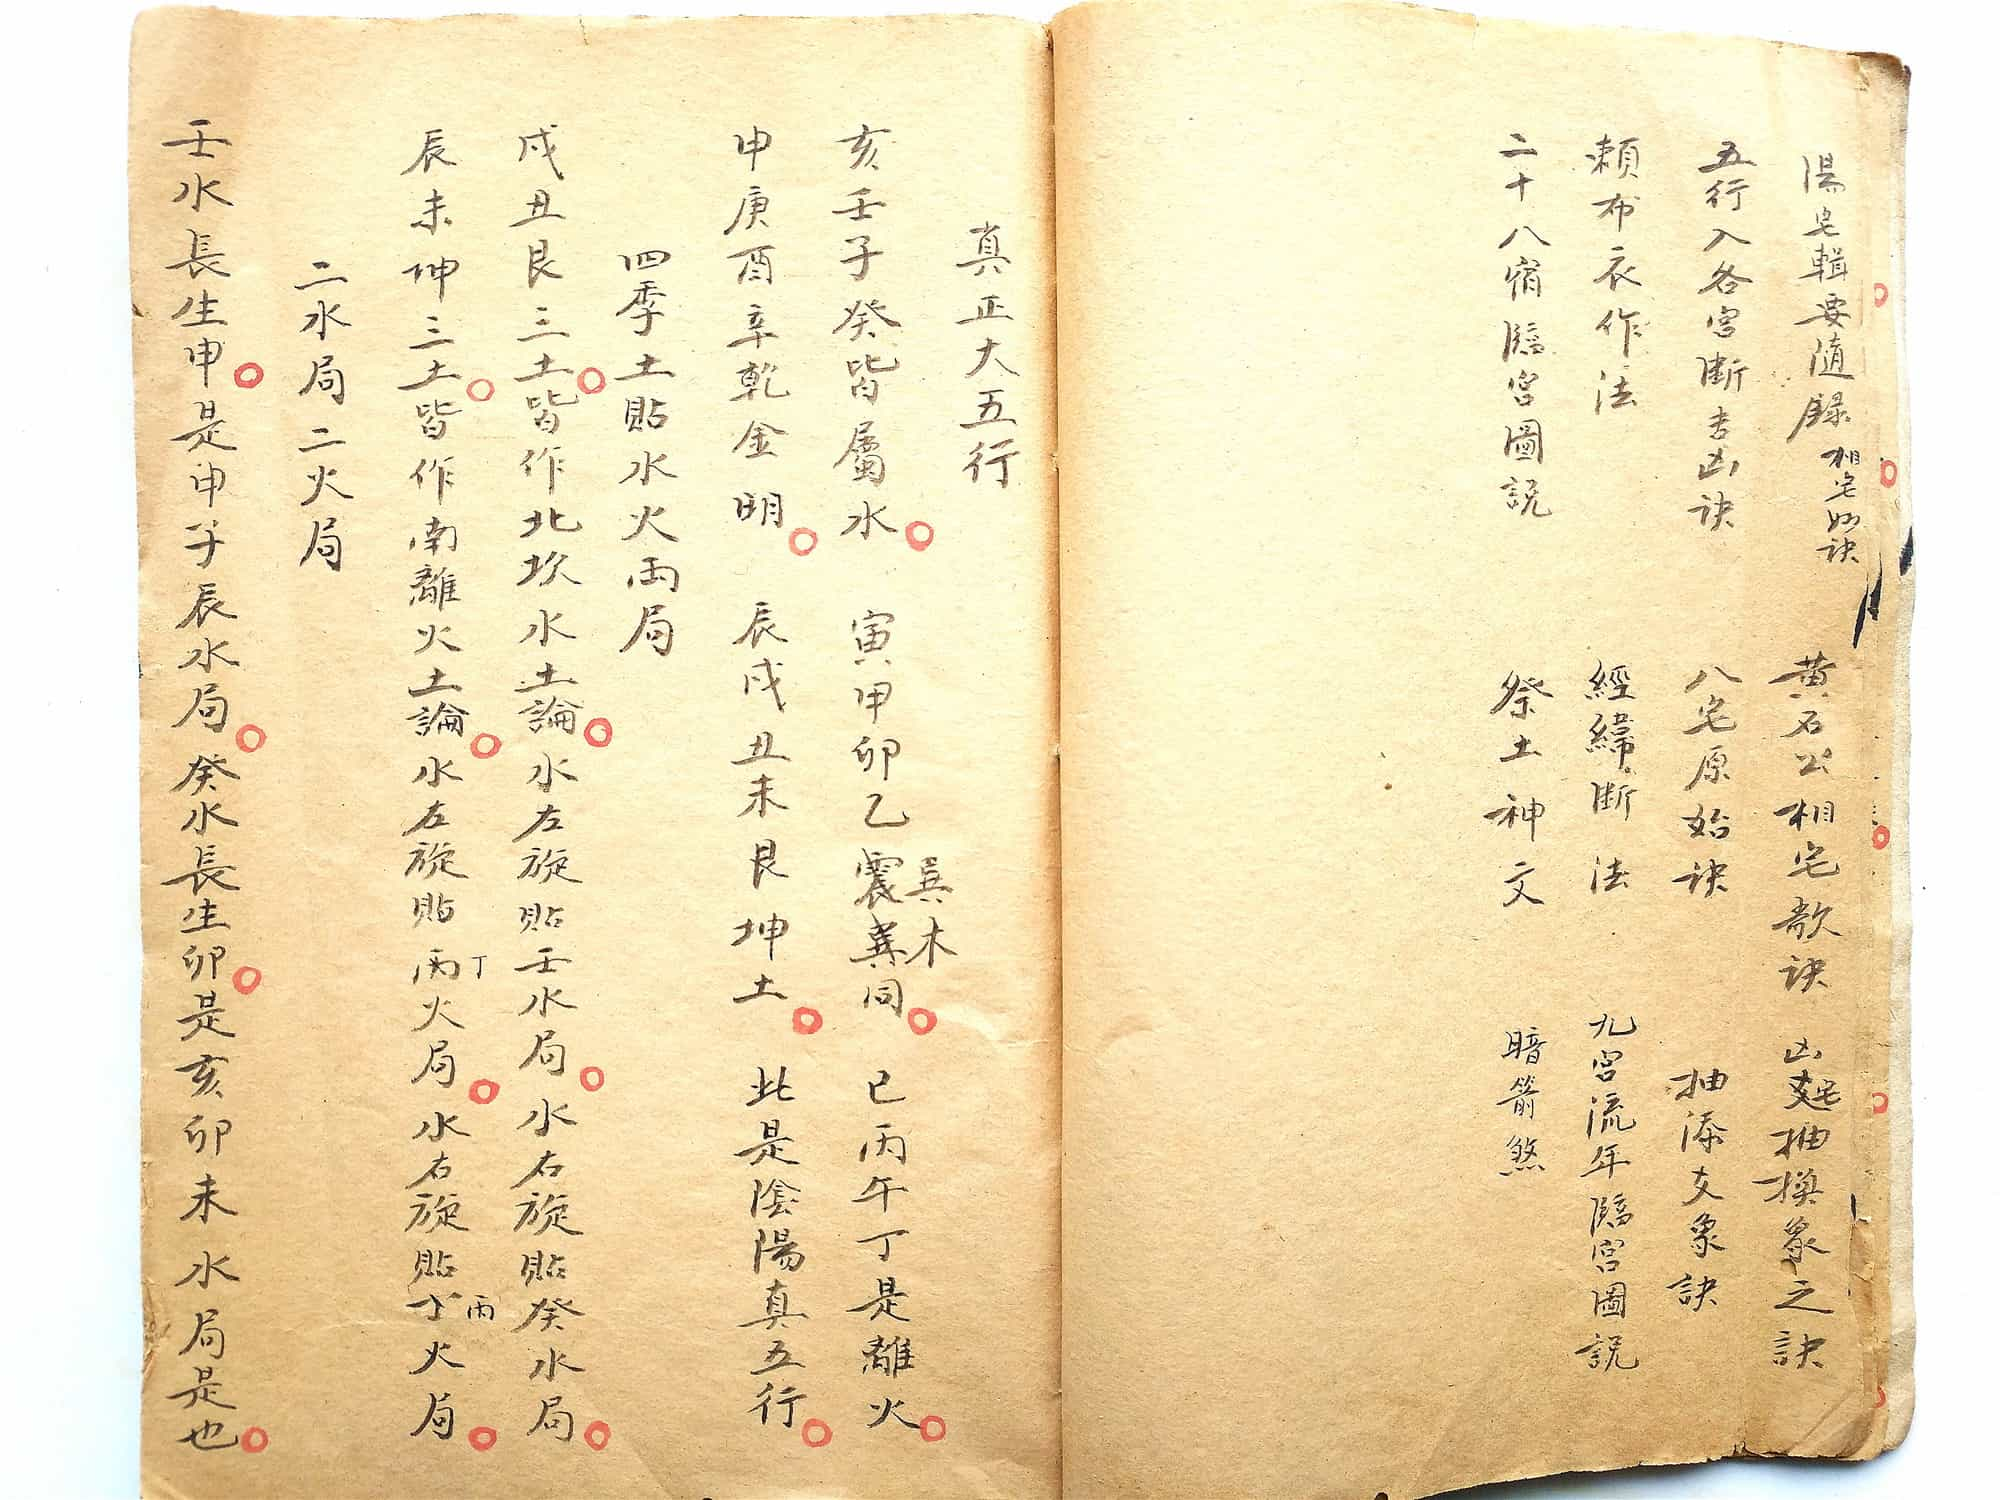 湯宅輯要隨錄 相宅妙訣 黃石公相宅歌訣 凶宅抽換象之訣
五行入各宮斷吉凶訣 八宅原始訣 抽添爻象訣
賴布衣作法 經緯斷法 九宮流年臨宮圖説
二十八宿臨宮圖説 祭土神文 暗箭煞
真正大五行
亥壬子癸皆屬水 寅甲卯乙震巽同 巽木 巳丙午丁是離火
申庚酉辛乾金明 辰戌丑未艮坤土 此是陰陽真五行
四季土貼水火兩局
戌丑艮三土皆作北坎水土論水左旋貼壬水局水右旋貼癸水局
辰未坤三土皆作南離火土論水左旋貼丙丁火局水右旋貼丁丙火局
二水局二火局
壬水長生申是申子辰水局癸水長生卯是亥卯未水局是也